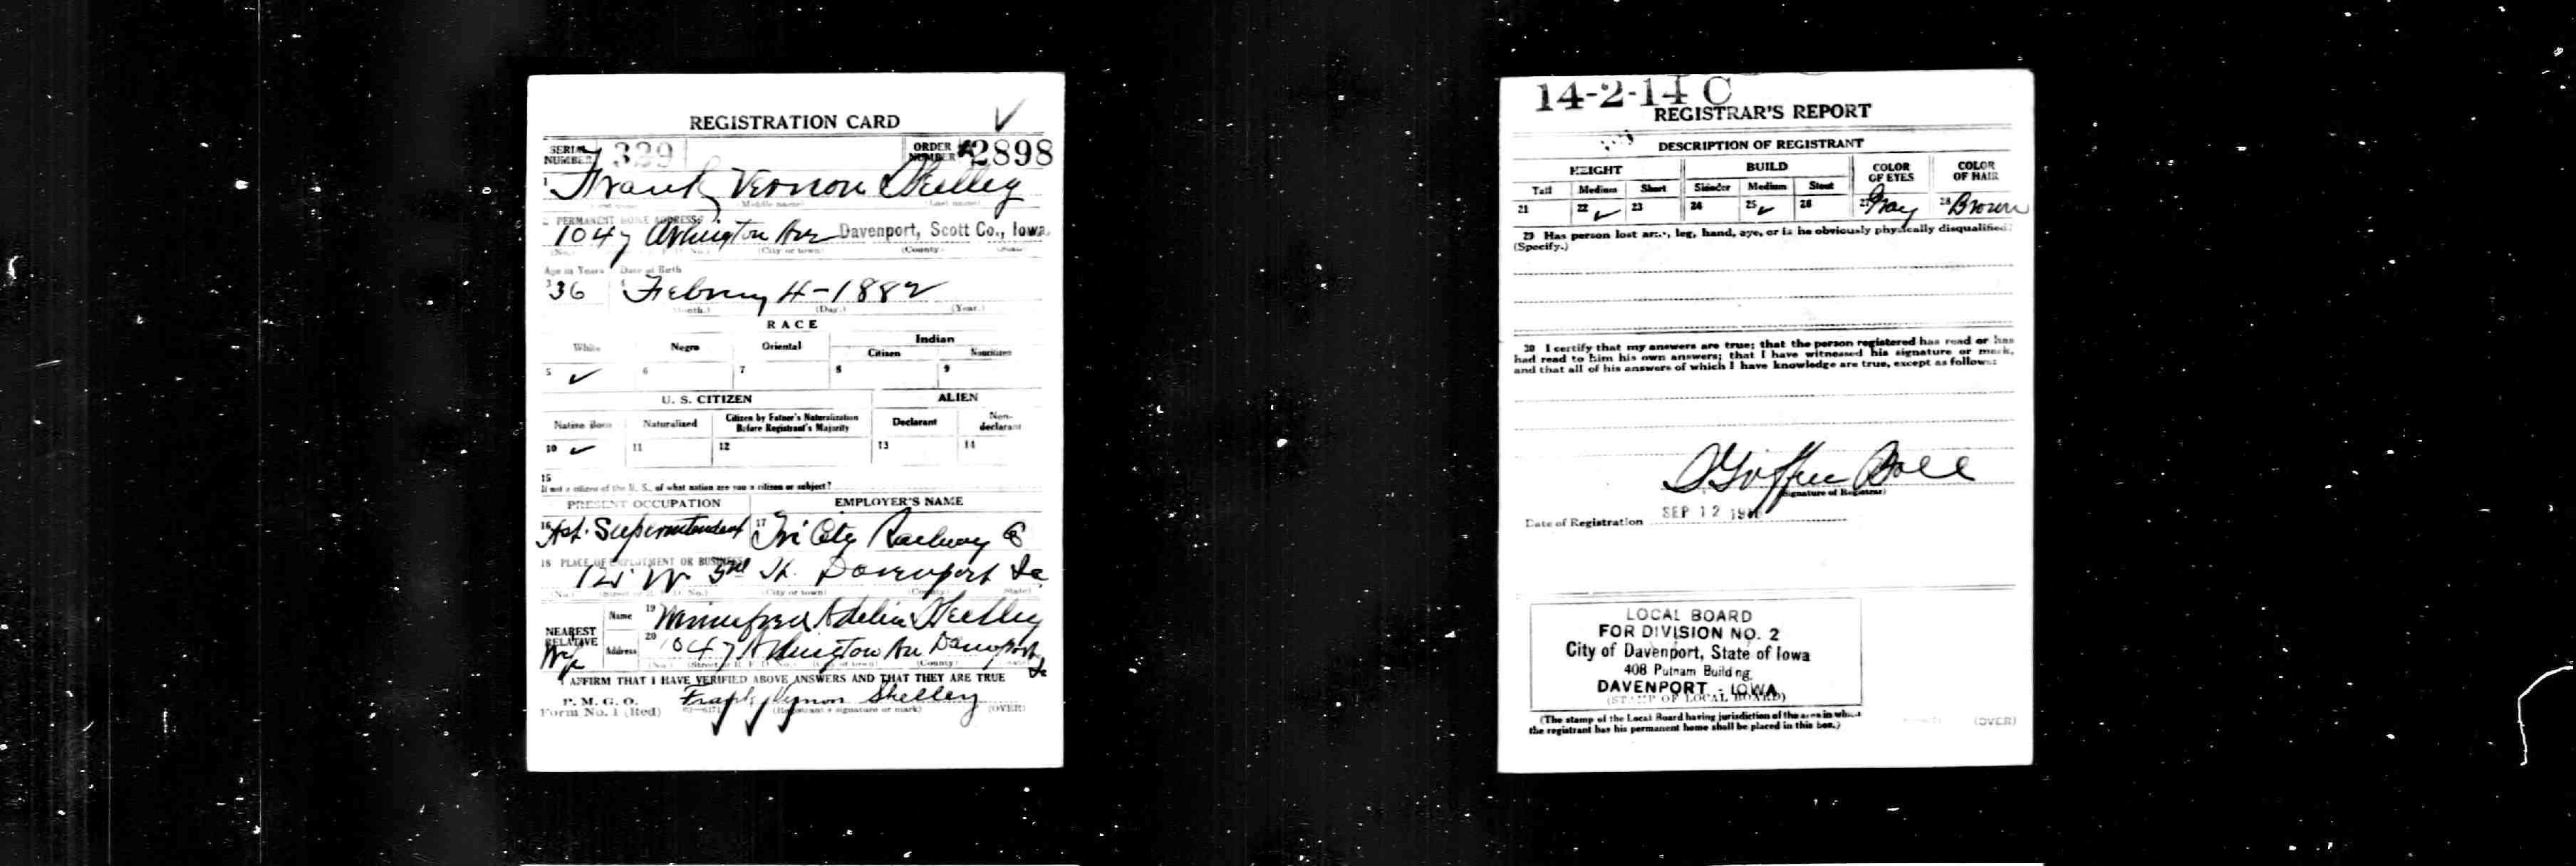 REGISTRATION CARD
SERIAL NUMBER 329 ORDER NUMBER 2898
1 Frank Vernon Shelley
(Middle name) (Last name)
2 PERMANENT HOME ADDRESS:
1047 Arlington Ave Davenport, Scott Co., Iowa.
(No.) (City or town) (County) (State)
Age in Years Date of Birth
3 36 4 February 4-1882
(Month.) (Day.) (Year.)
RACE
White Negro Oriental Indian
Citizen Noncitizen
5 ✓ 6 7 8 9
U. S. CITIZEN ALIEN
Native Born Naturalized Citizen by Father's Naturalization Before Registrant's Majority Declarant Non-declarant
10 ✓ 11 12 13 14
15
If not a citizen of the U. S., of what nation are you a citizen or subject?
PRESENT OCCUPATION EMPLOYER'S NAME
16 Ast. Superintendent 17 Tri City Railway Co
18 PLACE OF EMPLOYMENT OR BUSINESS:
W 3rd St. Davenport Ia
(No.) (Street or R. F. D. No.) (City or town) (County) (State)
NEAREST RELATIVE Name 19 Winnifred Adelia Shelley
Wife Address 20 1047 Arlington Av Davenport Ia
(No.) (Street or R. F. D. No.) (City or town) (County) (State)
I AFFIRM THAT I HAVE VERIFIED ABOVE ANSWERS AND THAT THEY ARE TRUE
P. M. G. O.
Form No. 1 (Red) Frank Vernon Shelley
(Registrant's signature or mark) (OVER)
14-2-14 C
REGISTRAR'S REPORT
DESCRIPTION OF REGISTRANT
HEIGHT BUILD COLOR OF EYES COLOR OF HAIR
Tall Medium Short Slender Medium Stout
21 22 ✓ 23 24 25 ✓ 26 27 Gray 28 Brown
29 Has person lost arm, leg, hand, eye, or is he obviously physically disqualified?
(Specify.)
30 I certify that my answers are true; that the person registered has read or has
had read to him his own answers; that I have witnessed his signature or mark,
and that all of his answers of which I have knowledge are true, except as follows:
(Signature of Registrar)
Date of Registration SEP 12 1918
LOCAL BOARD
FOR DIVISION NO. 2
City of Davenport, State of Iowa
408 Putnam Building
DAVENPORT - IOWA
(STAMP OF LOCAL BOARD)
(The stamp of the Local Board having jurisdiction of the area in which
the registrant has his permanent home shall be placed in this box.)
(OVER)